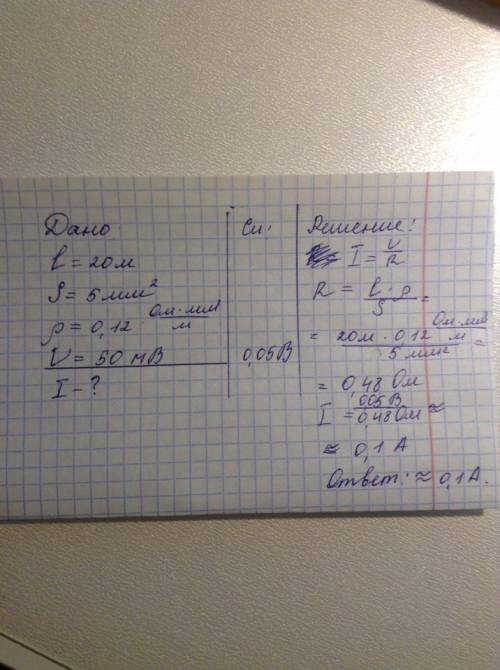 Дано:
l = 20 м
S = 5 мм²
ρ = 0,12 Ом·мм²/м
U = 50 мВ
I - ?
Си:
0,05 В
Решение:
I = U/R
R = l·ρ/S =
= 20 м · 0,12 Ом·мм²/м / 5 мм² =
= 0,48 Ом
I = 0,05 В/0,48 Ом ≈
≈ 0,1 А
Ответ: ≈ 0,1 А.